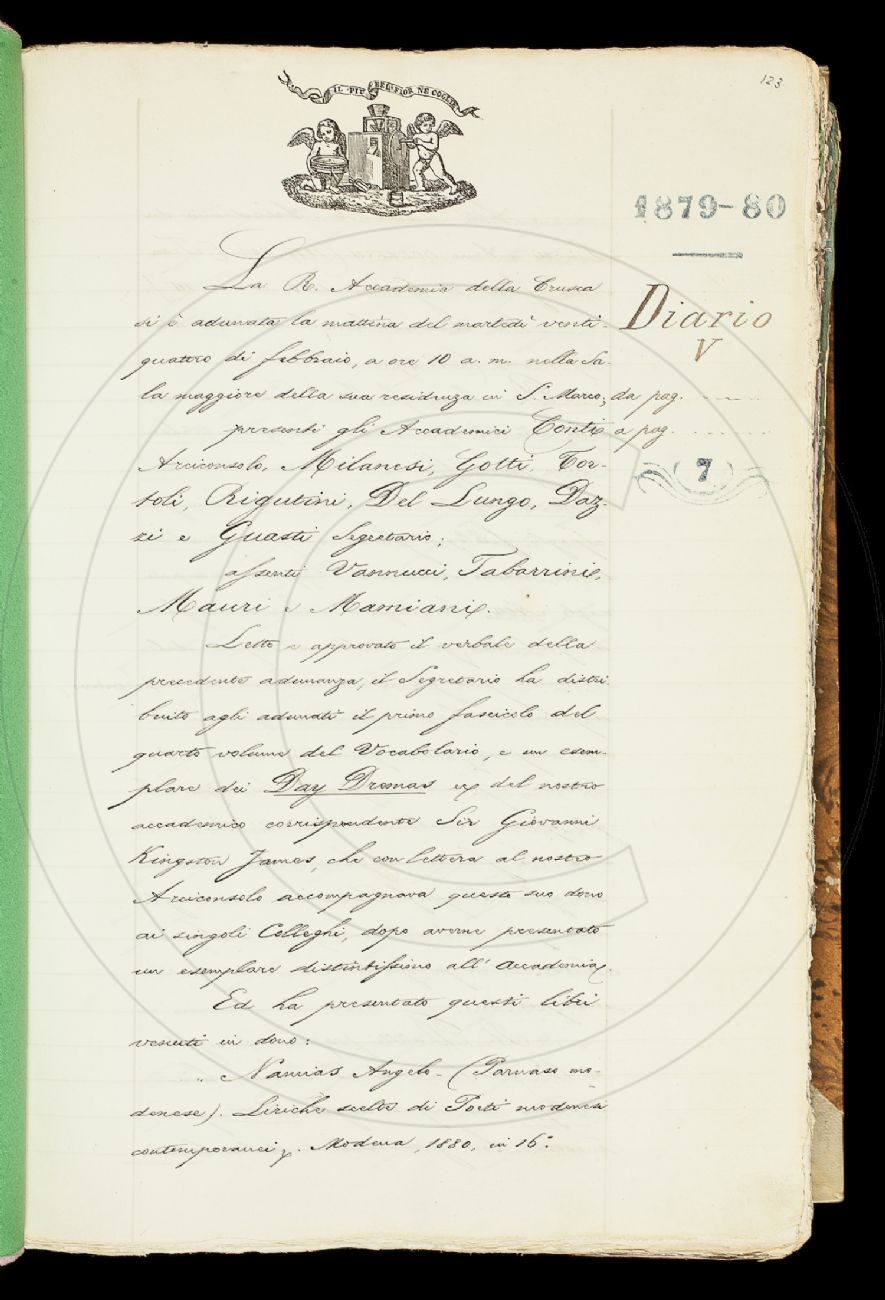 123
IL PIÙ BEL FIOR NE COGLIE
1879-80
Diario
V
da pag. ......
a pag. ......
7
La R. Accademia della Crusca
si è adunata la mattina del martedì venti-
quattro di febbraio, a ore 10 a. m. nella Sa-
la maggiore della sua residenza in S. Marco;
presenti gli Accademici Conti
Arciconsolo, Milanesi, Gotti, Tor-
toli, Rigutini, Del Lungo, Daz-
zi e Guasti Segretario;
assenti Vannucci, Tabarrini,
Mauri e Mamiani.
Letto e approvato il verbale della
precedente adunanza, il Segretario ha distri
buito agli adunati il primo fascicolo del
quarto volume del Vocabolario, e un esem-
plare dei Day Dremas del nostro
accademico corrispondente Sir Giovanni
Kingston James, che con lettera al nostro
Arciconsolo accompagnava questo suo dono
ai singoli Colleghi, dopo averne presentato
un esemplare distintissimo all' Accademia.
Ed ha presentato questi libri
venuti in dono:
Namias Angelo - (Parnaso mo-
denese). Liriche scelte di Poeti modenesi
contemporanei. Modena, 1880, in 16.°